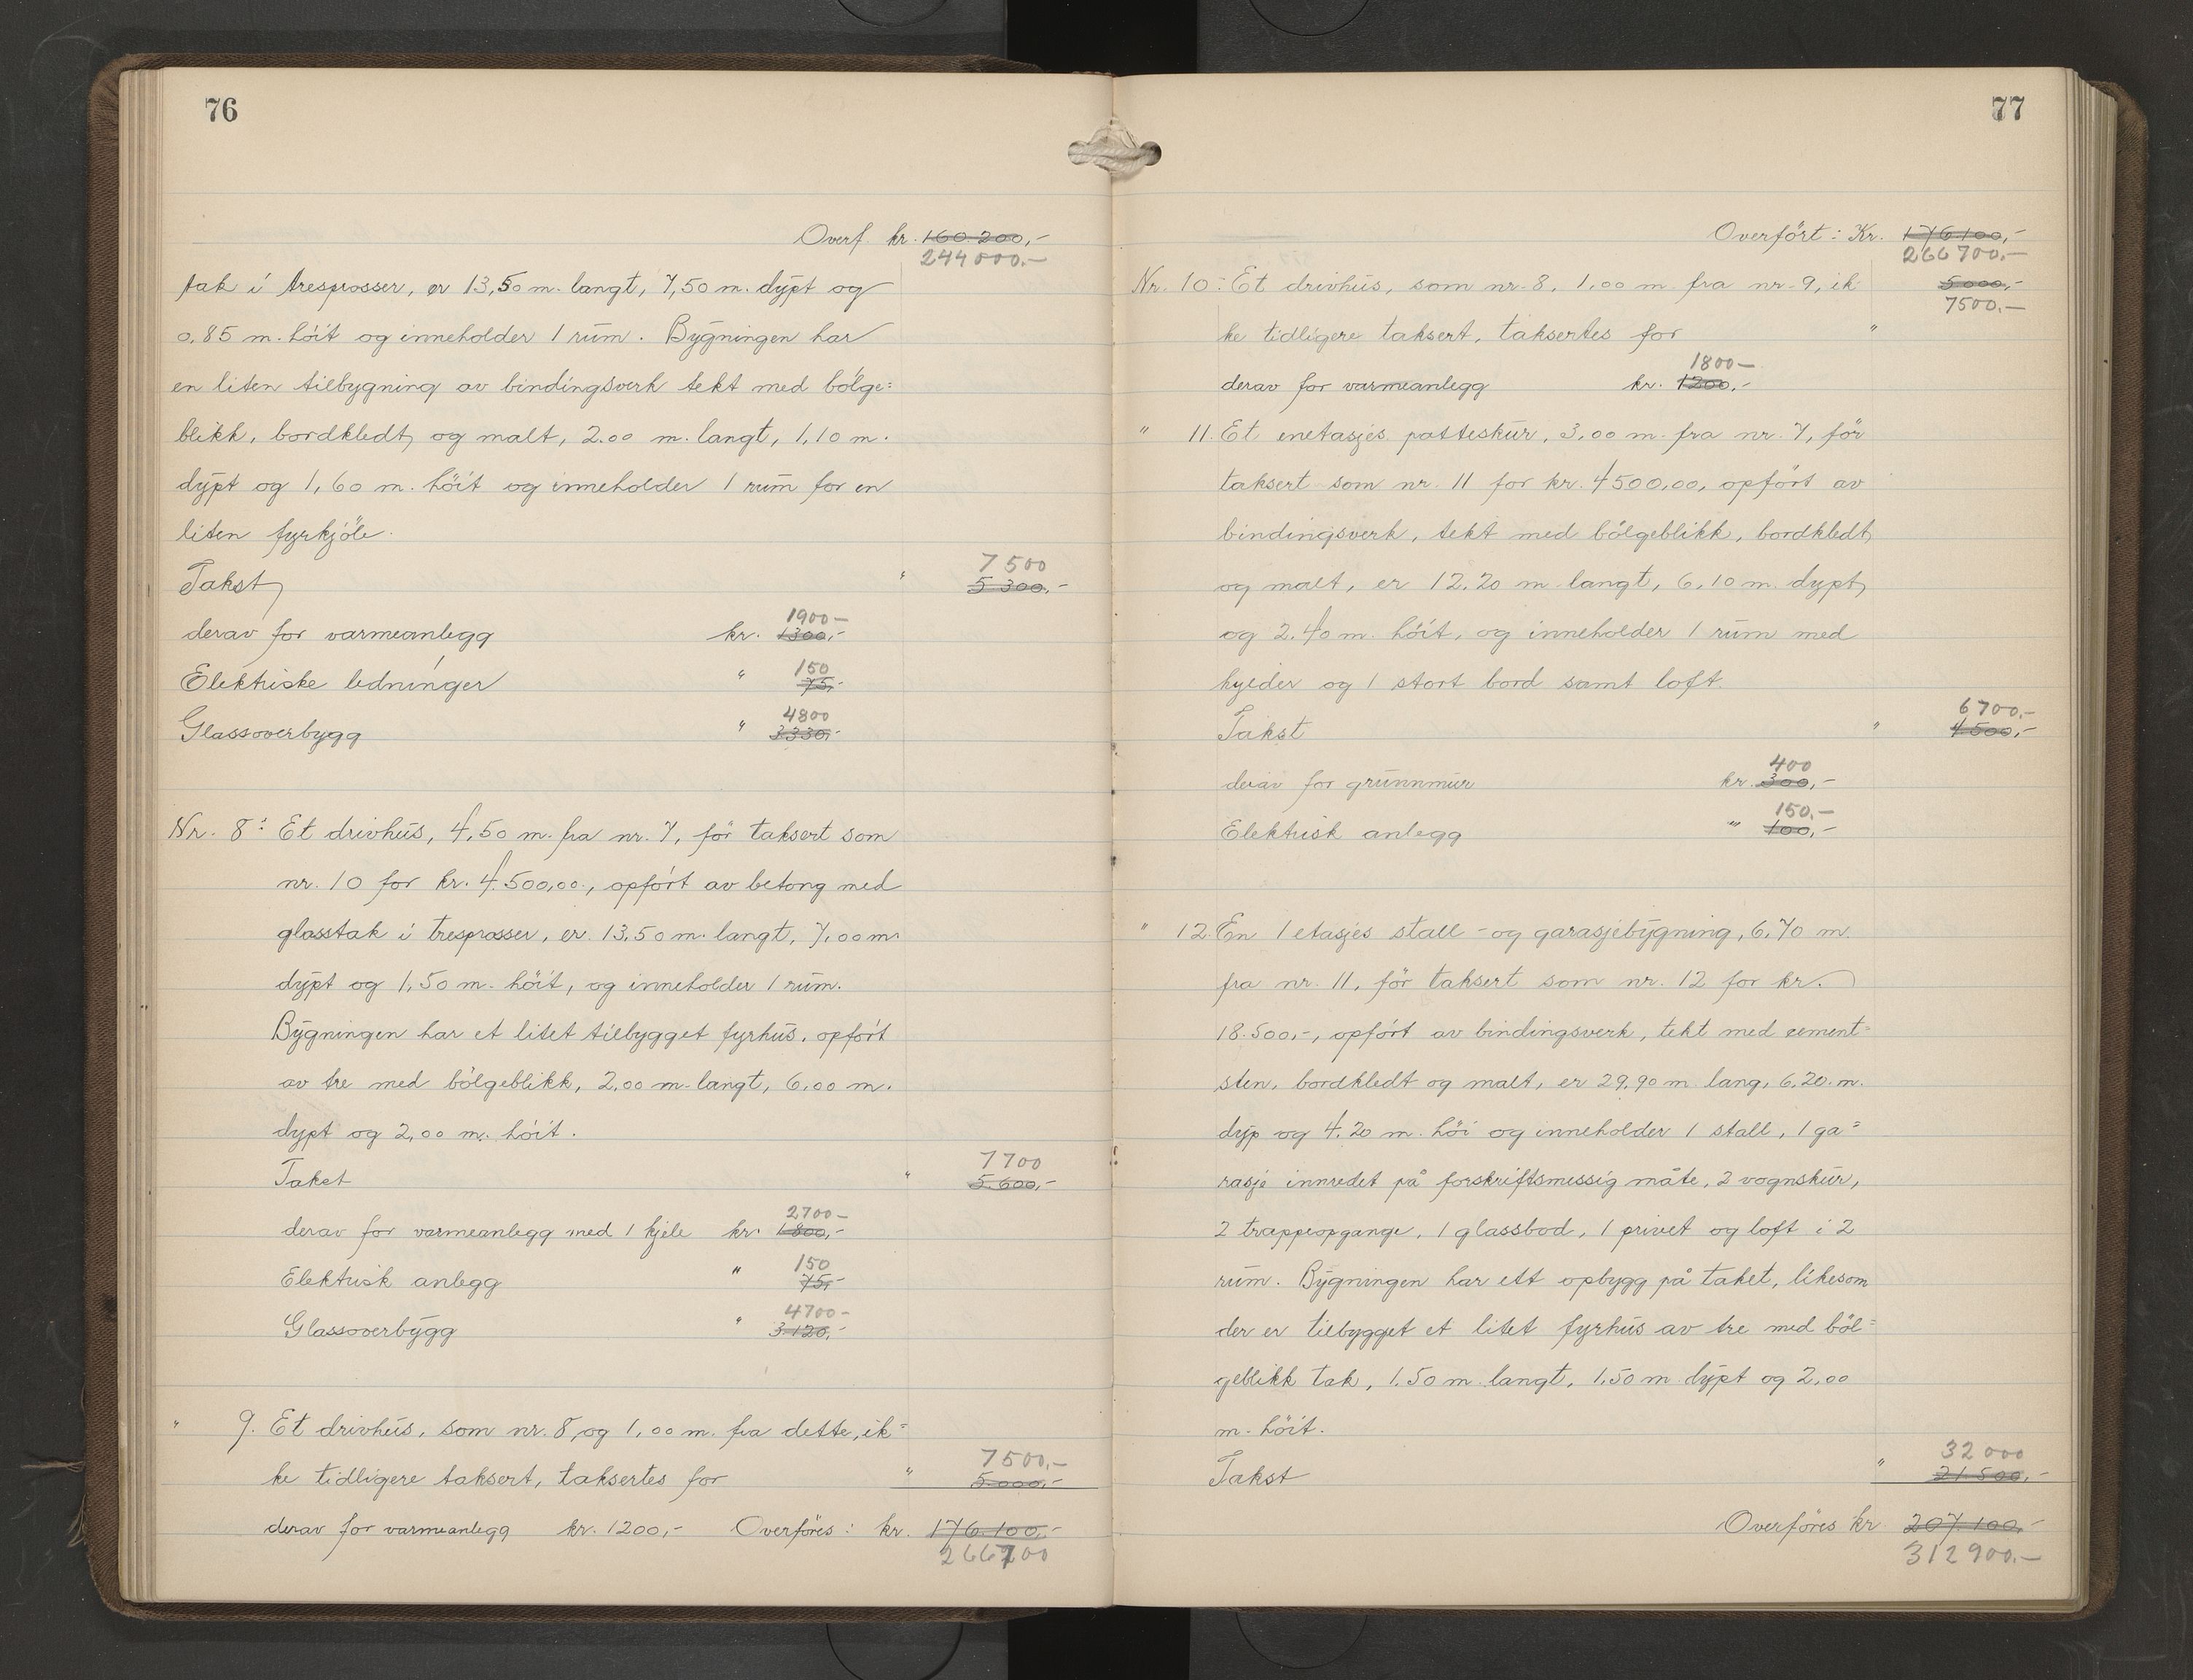 76
Overf. kr. 160.200,-
244000.-
tak i tresprosser, er 13,50 m. langt, 7,50 m. dypt og
0,85 m. höit og inneholder 1 rum. Bygningen har
en liten tilbygning av bindingsverk tekt med bölge=
blikk, bordkledt og malt, 2.00 m. langt, 1,10 m.
dypt og 1,60 m. höit og inneholder 1 rum for en
liten fyrkjöle.
7500
Takst " 5 300.-
1900-
derav for varmeanlegg kr. 1300,-
150
Elektriske ledninger " 75,-
4800
Glassoverbygg " 3330,-
Nr. 8: Et drivhus, 4,50 m. fra nr. 7, för taksert som
nr. 10 for kr. 4.500,00, opfört av betong med
glasstak i tresprosser, er 13,50 m. langt, 7,00 m.
dypt og 1,50 m. höit, og inneholder 1 rum.
Bygningen har et litet tilbygget fyrhus, opfört
av tre med bölgeblikk, 2,00 m. langt, 6,00 m.
dypt og 2,00 m. höit.
7700
Takst " 5.600,-
2700-
derav for varmeanlegg med 1 kjele kr. 1800,-
150
Elektrisk anlegg " 75,-
4700-
Glassoverbygg " 3.120,-
" 9. Et drivhus, som nr. 8, og 1,00 m. fra dette, ik=
7500.-
ke tidligere taksert, taksertes for " 5.000,-
derav for varmeanlegg kr. 1200,- Overföres: kr. 176.100,-
266700
77
Overfört: Kr. 176.100,-
266700.-
Nr. 10: Et drivhus, som nr. 8, 1,00 m. fra nr. 9, ik- 5000,-
7500.-
ke tidligere taksert, taksertes for "
1800-
derav for varmeanlegg kr. 1200,-
" 11. Et enetasjes patteskur, 3,00 m. fra nr. 7, för
taksert som nr. 11 for kr. 4500,00, opfört av
bindingsverk, tekt med bölgeblikk, bordkledt
og malt, er 12.20 m. langt, 6,10 m. dypt
og 2.40 m. höit, og inneholder 1 rum med
hylder og 1 stort bord samt loft.
6700.-
Takst " 4.500,-
400
derav for grunnmur kr. 300,-
150.-
Elektrisk anlegg " 100,-
" 12. En 1 etasjes stall- og garasjebygning, 6,70 m.
fra nr. 11, för taksert som nr. 12 for kr.
18.500,-, opfört av bindingsverk, tekt med cement=
sten, bordkledt og malt, er 29,90 m lang, 6.20 m.
dyp og 4.20 m. höi og inneholder 1 stall, 1 ga=
rasje innredet på forskriftsmessig måte, 2 vognskur,
2 trappeopgange, 1 glassbod, 1 privet og loft i 2
rum. Bygningen har ett opbygg på taket, likesom
der er tilbygget et litet fyrhus av tre med böl=
geblikk tak, 1.50 m. langt, 1.50 m. dypt og 2,00
m. höit.
32000
Takst " 21.500,-
Overföres kr 207.100,-
312900.-